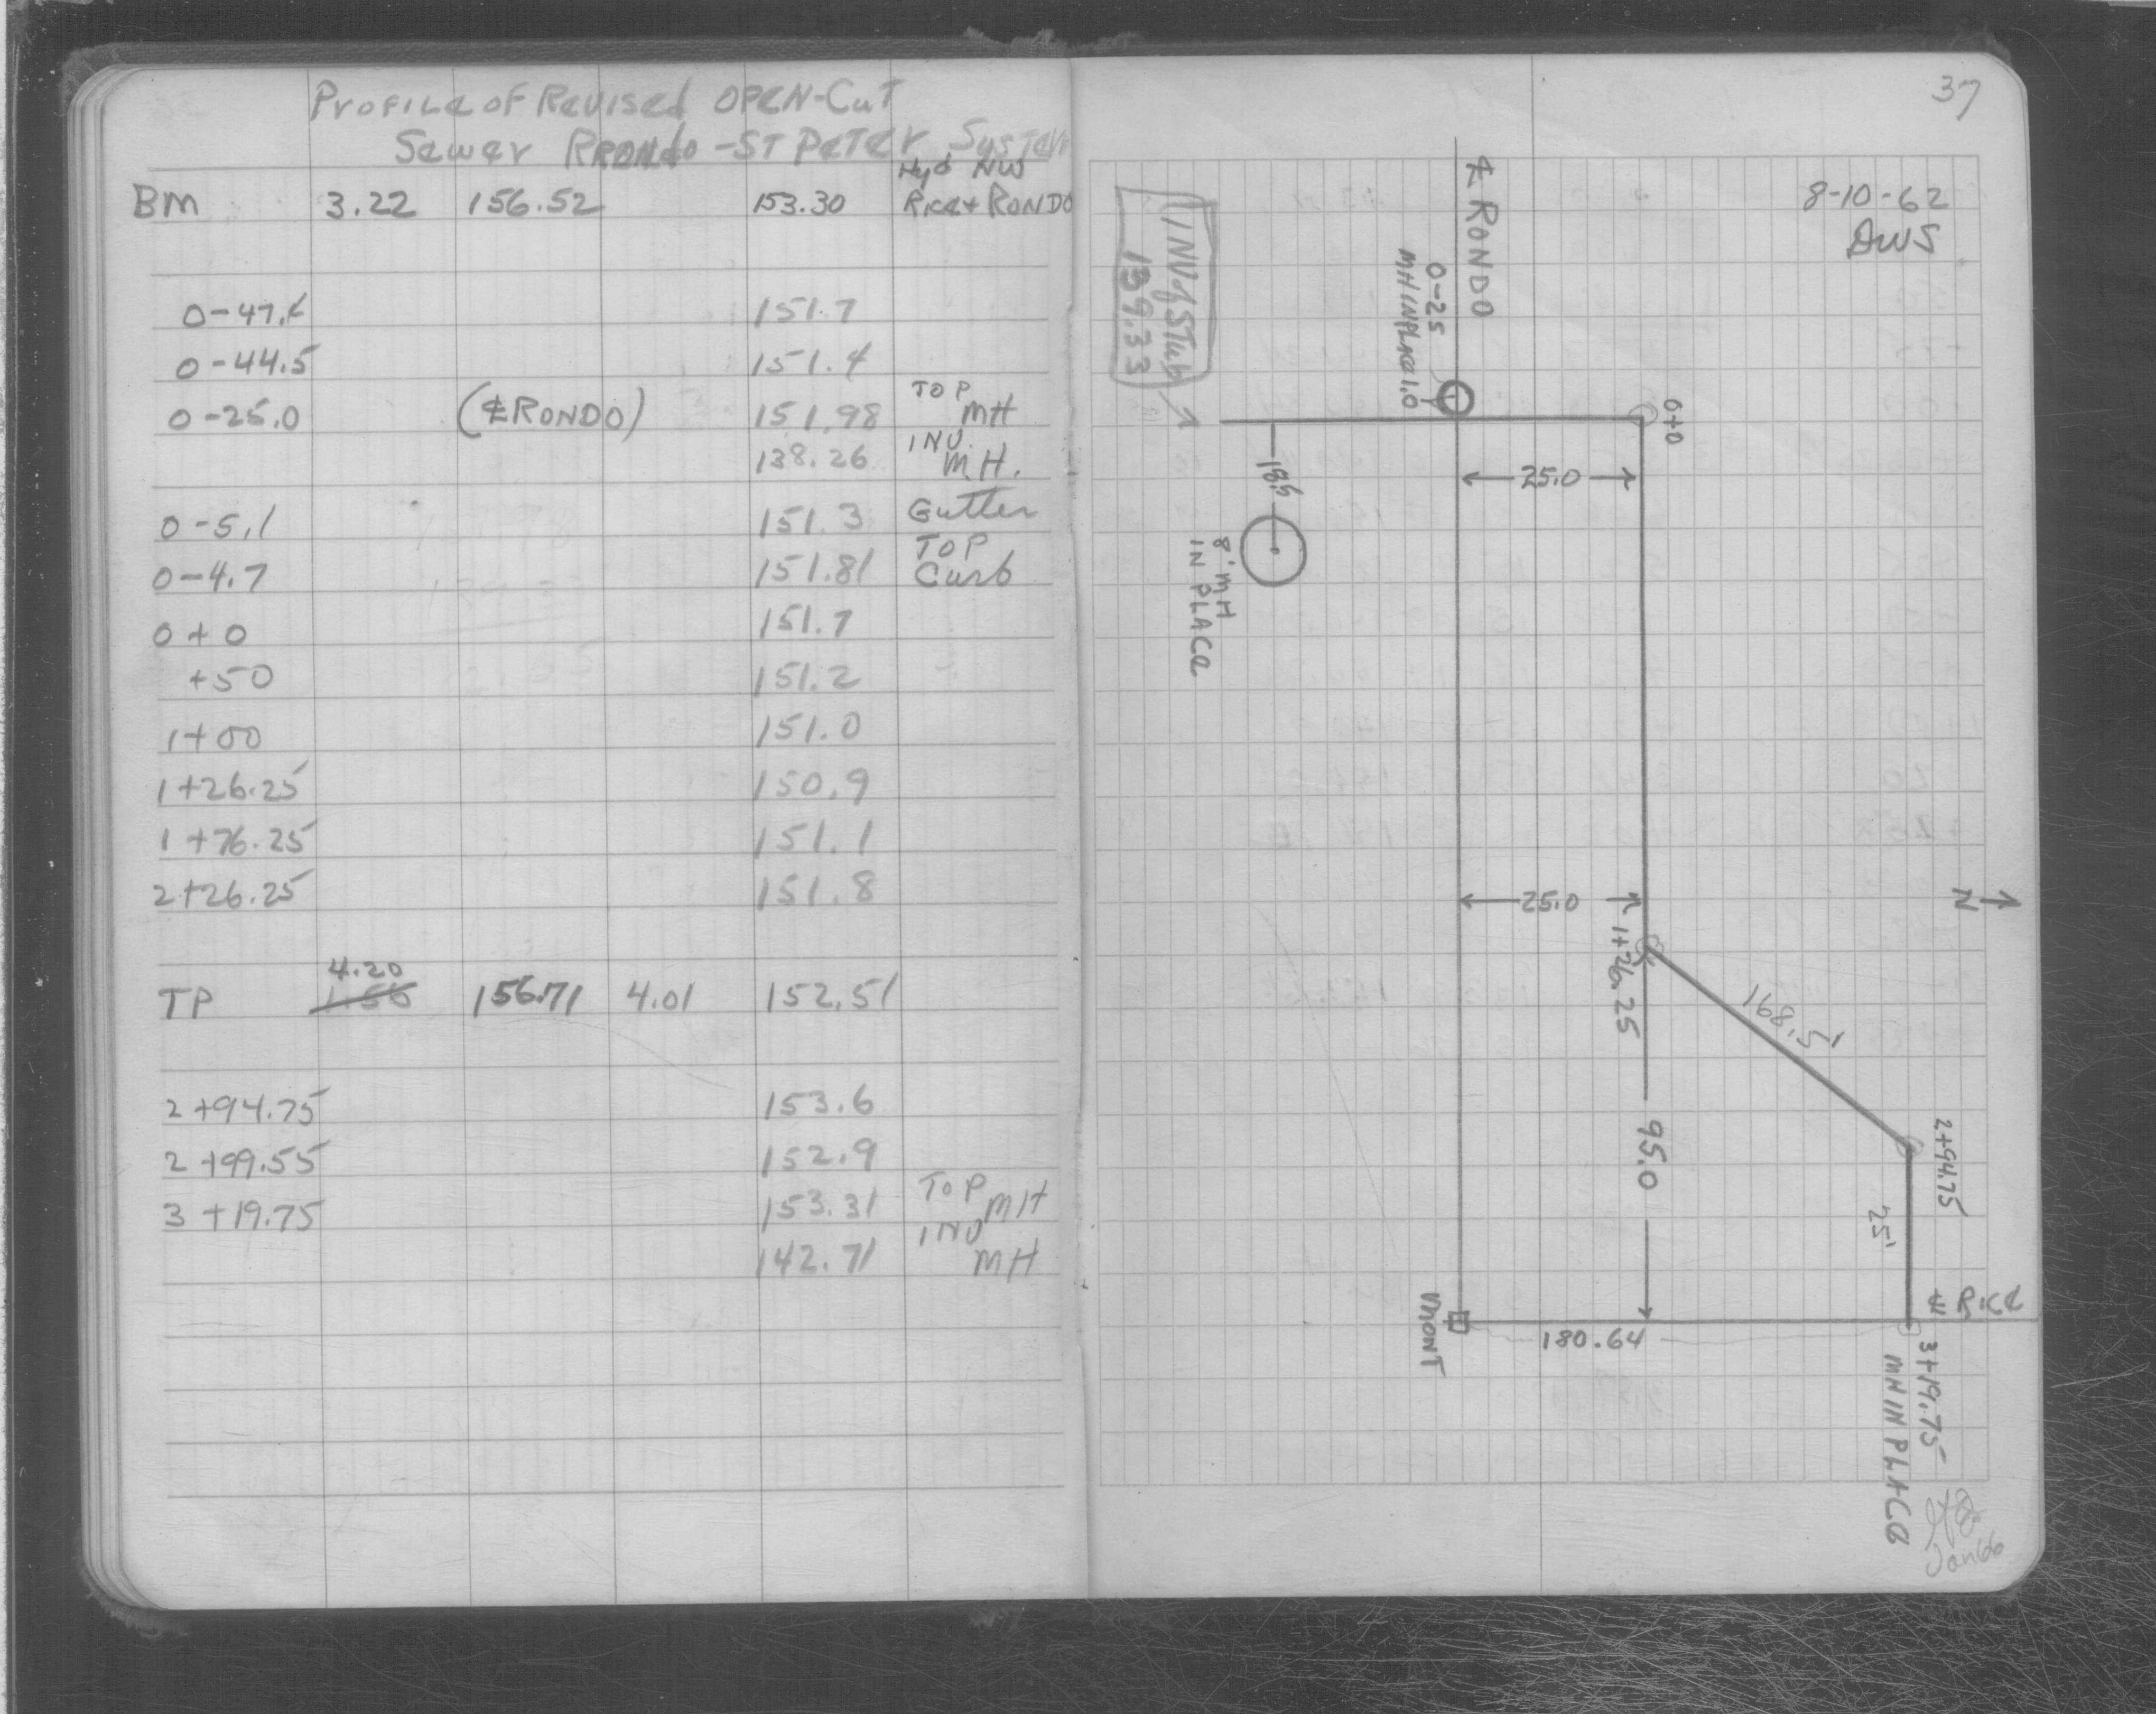 Profile of Revised OPEN-CUT
Sewer RRONdo - ST PETER System
Hyd NW
BM 3.22 156.52 153.30 Rice + RONDO
151.7
0-44.5 151.4
0-25.0 (℄ RONDO) 151.98 TOP MH
138.26 INV. M.H.
0-5.1 151.3 Gutter
0-4.7 151.81 TOP Curb
0+0 151.7
+50 151.2
1+00 151.0
1+26.25 150.9
1+76.25 151.1
2+26.25 151.8
4.20
TP 156.71 4.01 152.51
2+94.75 153.6
2+99.55 152.9
3+19.75 153.31 TOP MH
142.71 INV MH
37
8-10-62
DWS
℄ RONDO
INV of Stub
139.33
0-25
MH INPLACE
0+0
25.0
18.5
8' MH
IN PLACE
25.0
N
1+26.25
168.5'
95.0
2+94.75
25'
℄ Rice
MONT
180.64
3+19.75
MH IN PLACE